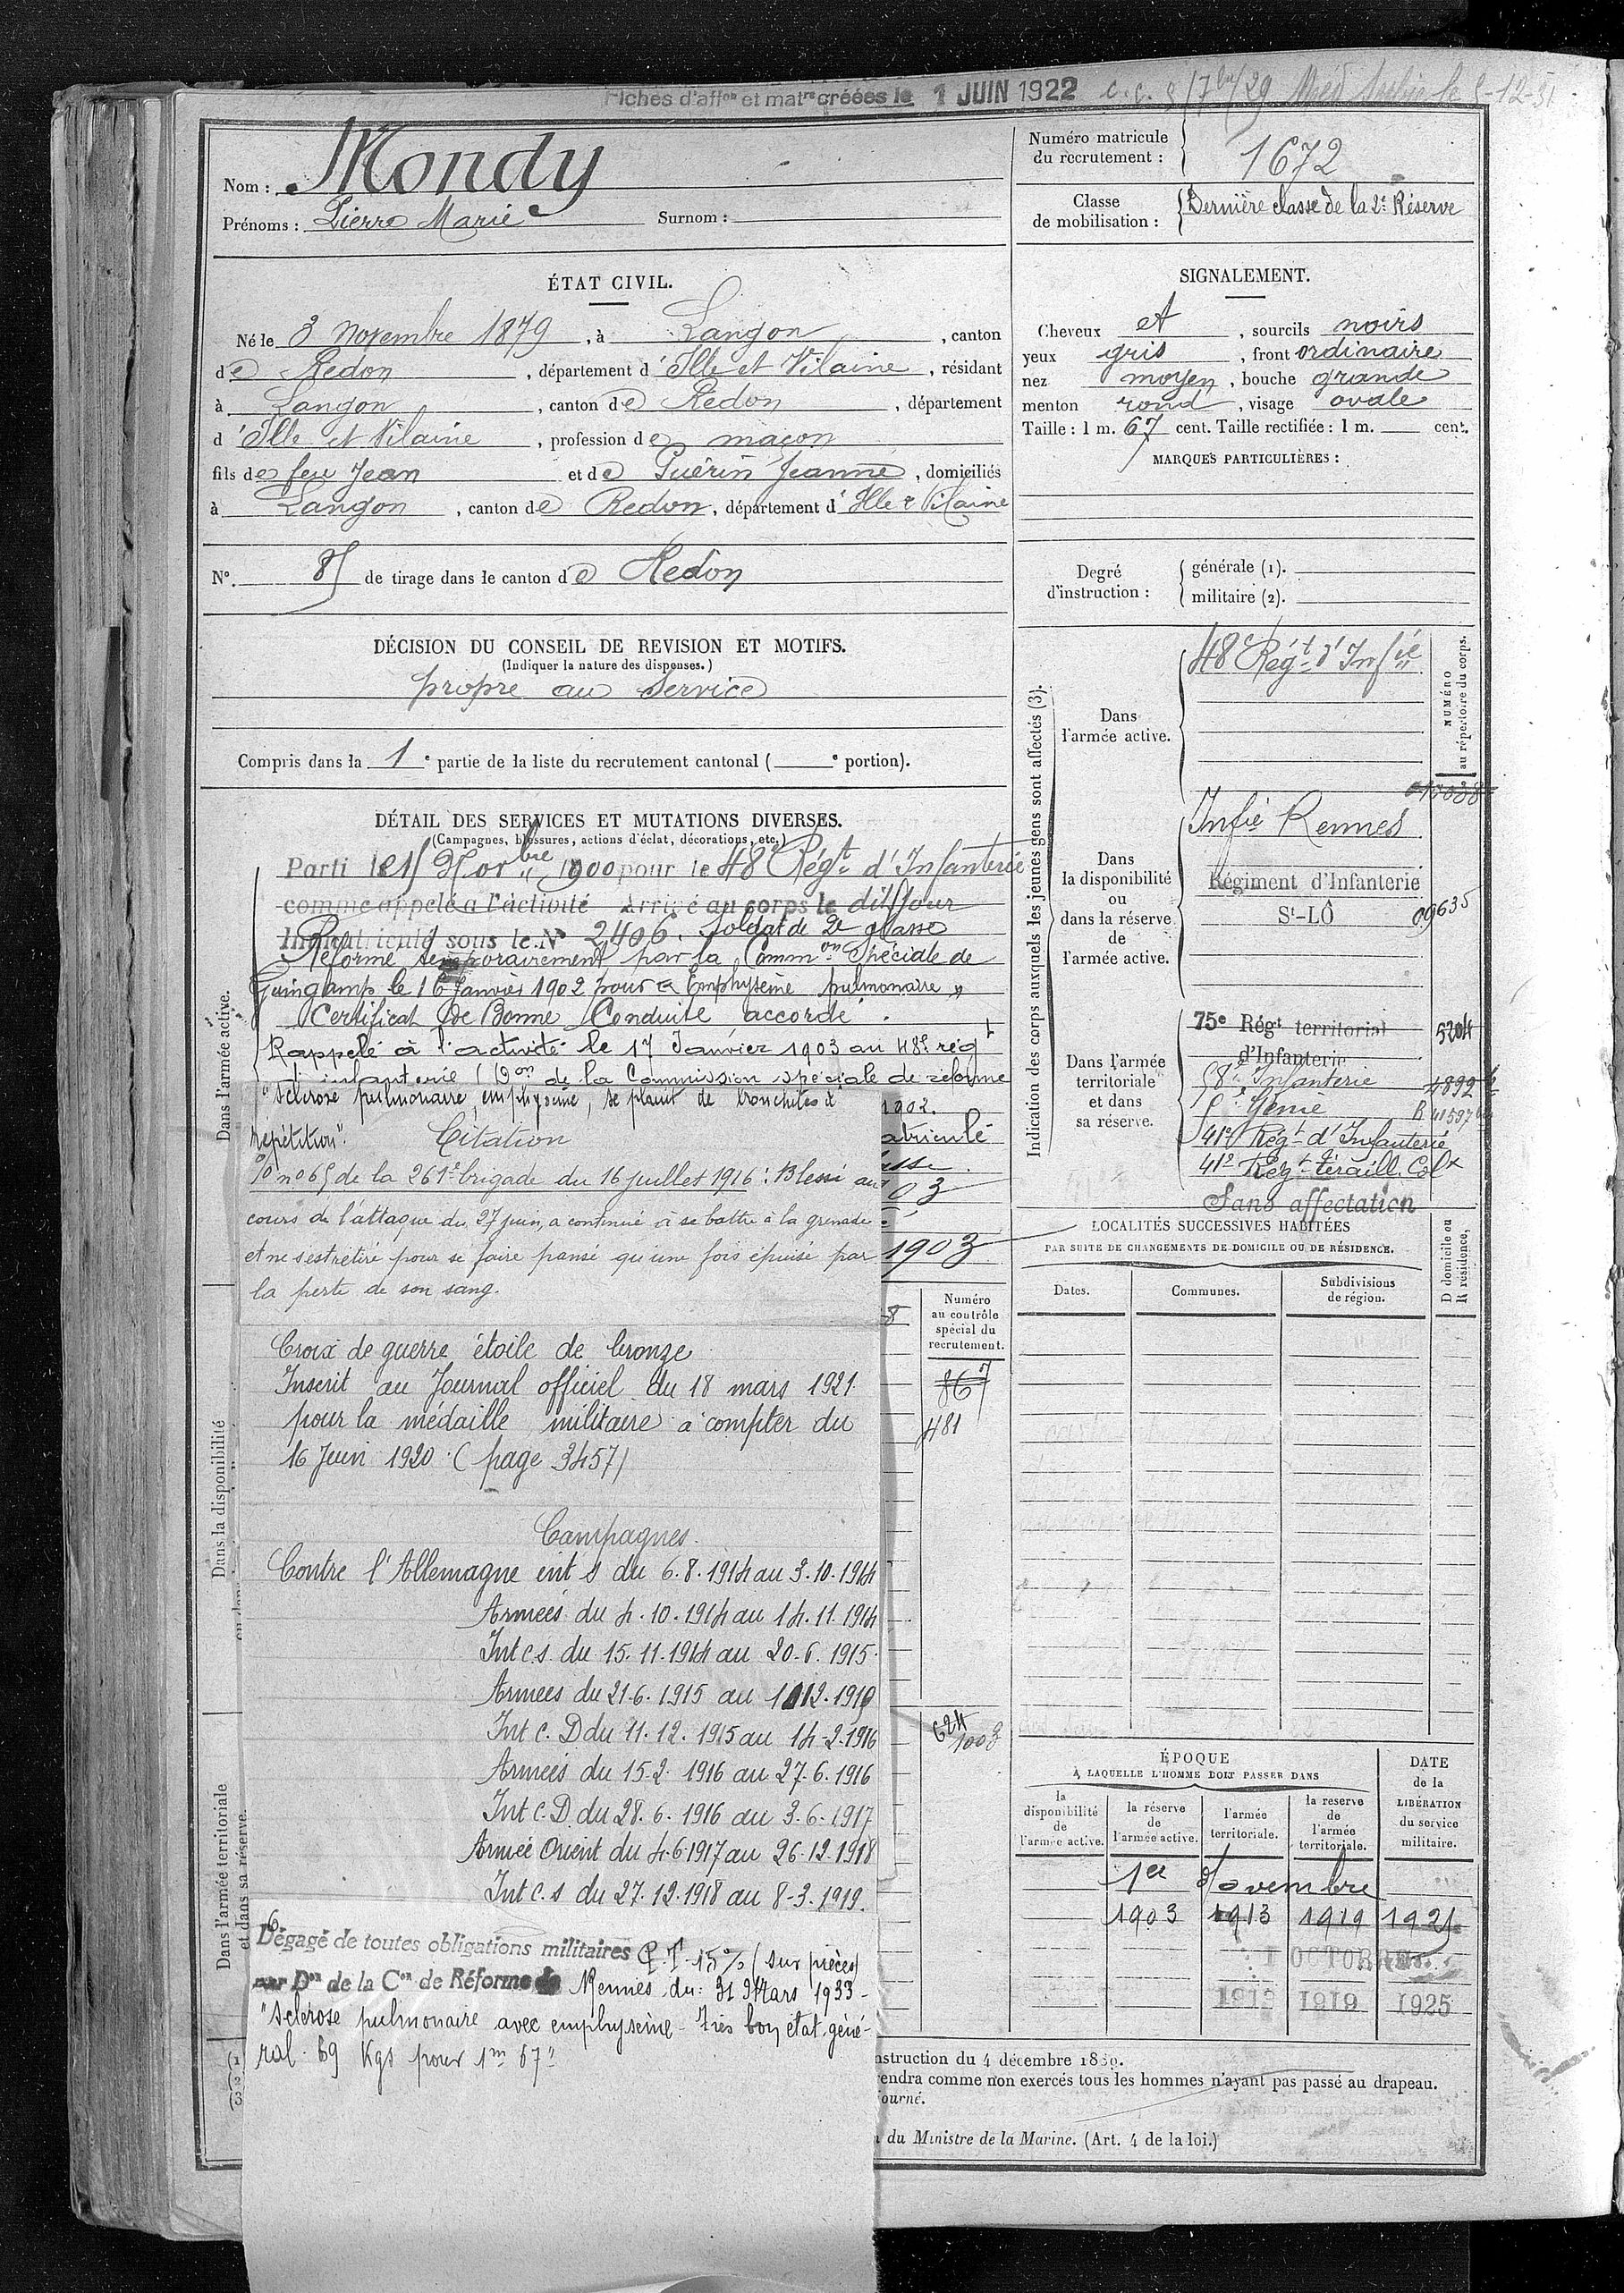 Fiches d'aff<sup>on</sup> et mat<sup>re</sup> créées le 1 JUIN 1922
Nom : Mondy
Prénoms : Pierre Marie Surnom :
Numéro matricule du recrutement : 1672
Classe de mobilisation : Dernière classe de la 2e Réserve
ÉTAT CIVIL.
Né le 3 novembre 1879, à Langon, canton
de Redon, département d'Ille et Vilaine, résidant
à Langon, canton de Redon, département
d'Ille et Vilaine, profession de maçon
fils de feu Jean et de Guérin Jeanne, domiciliés
à Langon, canton de Redon, département d'Ille & Vilaine
N°. 85 de tirage dans le canton de Redon
SIGNALEMENT.
Cheveux et, sourcils noirs
yeux gris, front ordinaire
nez moyen, bouche grande
menton rond, visage ovale
Taille : 1 m. 67 cent. Taille rectifiée : 1 m. cent.
MARQUES PARTICULIÈRES :
Degré d'instruction : générale (1).
militaire (2).
DÉCISION DU CONSEIL DE REVISION ET MOTIFS.
(Indiquer la nature des dispenses.)
propre au service
Compris dans la 1e partie de la liste du recrutement cantonal ( e portion).
DÉTAIL DES SERVICES ET MUTATIONS DIVERSES.
(Campagnes, blessures, actions d'éclat, décorations, etc.)
Dans l'armée active.
Parti le 15 Novbre 1900 pour le 48e Régt d'Infanterie
comme appelé à l'activité Arrivé au corps le dit jour
Immatriculé sous le N° 2406. Soldat de 2e classe
Réformé temporairement par la Common Spéciale de
Guingamp le 16 Janvier 1902 pour "Emphysème pulmonaire"
Certificat de Bonne Conduite accordé.
Rappelé à l'activité le 17 Janvier 1903 au 48e régt
d'infanterie (Don de la Commission spéciale de réforme
1902.
atriculé
sse
03
1903
"Sclérose pulmonaire, emphysème, se plaint de bronchites à
répétition".
Citation
O/ n° 65 de la 261e brigade du 16 juillet 1916 : Blessé au
cours de l'attaque du 27 juin, a continué à se battre à la grenade
et ne s'est retiré pour se faire pansé qu'une fois épuisé par
la perte de son sang.
Croix de guerre étoile de bronze
Inscrit au Journal officiel du 18 mars 1921
pour la médaille militaire à compter du
16 Juin 1920 (page 3457)
Campagnes.
Contre l'Allemagne int s du 6.8.1914 au 3.10.1914
Armées du 4.10.1914 au 14.11.1914
Int c.s. du 15.11.1914 au 20.6.1915
Armées du 21.6.1915 au
Int C.D du 11.12.1915 au 14.2.1916
Armées du 15.2 1916 au 27.6.1916
Int C.D. du 28.6.1916 au 3.6.1917
Armée Orient du 4.6.1917 au 26.12.1918
Int c.s du 27.12.1918 au 8-3.1919.
Dégagé de toutes obligations militaires P.T. 15% (sur pièces)
par Don de la Con de Réforme de Rennes du : 31 Mars 1933 -
"Sclérose pulmonaire avec emphysème - Très bon état géné-
ral. 69 Kgs pour 1m 67"
Dans la disponibilité
Dans l'armée territoriale et dans sa réserve.
Numéro au contrôle spécial du recrutement.
867
481
624
1003
Indication des corps auxquels les jeunes gens sont affectés (3).
NUMÉRO au répertoire du corps.
Dans l'armée active.
48e Régt d'Infie
Dans la disponibilité ou dans la réserve de l'armée active.
Infie Rennes
Régiment d'Infanterie
St-LÔ 09635
Dans l'armée territoriale et dans sa réserve.
75e Régt territorial d'Infanterie 5204
Infanterie
Génie
41e Régt d'Infanterie
41e Régt tiraill. Colx
Sans affectation
LOCALITÉS SUCCESSIVES HABITÉES
PAR SUITE DE CHANGEMENTS DE DOMICILE OU DE RÉSIDENCE.
Dates. Communes. Subdivisions de région.
D domicile ou R résidence.
ÉPOQUE
À LAQUELLE L'HOMME DOIT PASSER DANS
la disponibilité de l'armée active.
la réserve de l'armée active.
l'armée territoriale.
la reserve de l'armée territoriale.
DATE de la LIBÉRATION du service militaire.
1er Novembre
1903 1913 1919 1921
1 OCTOBRE
1913 1919 1925
nstruction du 4 décembre 1889.
endra comme non exercés tous les hommes n'ayant pas passé au drapeau.
ourné.
du Ministre de la Marine. (Art. 4 de la loi.)